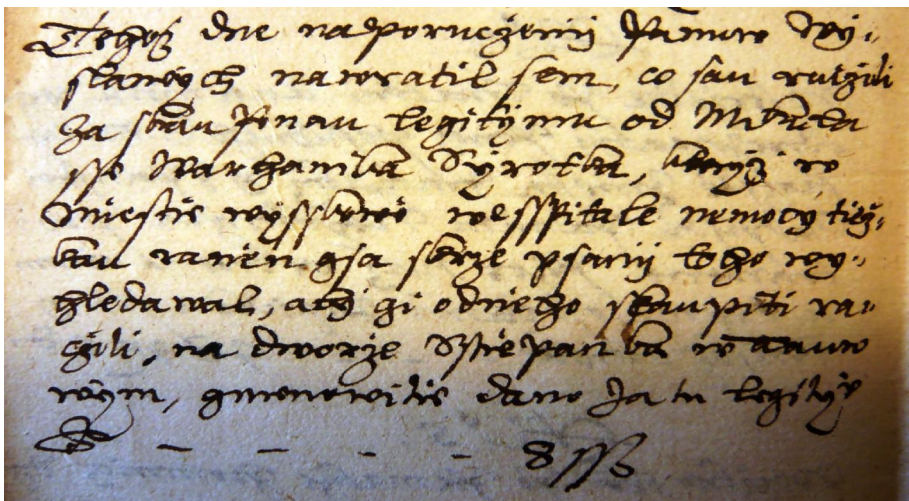 Tehož dne na poručzenij Panuw Wy-
slanych nawratil sem, co sau raczili
za skaupenau legitymu od Mikulasse
Warhanika Syrotka, kteryz w
Miestie wysskowie wesspitale nemocy tiež-
kau ranen gsa skrze psanij toho wy-
hledawal, aby gi od nieho skaupiti ra-
czili, na dworze Sstiepanka w
wym, gmenowitie dano za tu legity
- - - - 8 ss